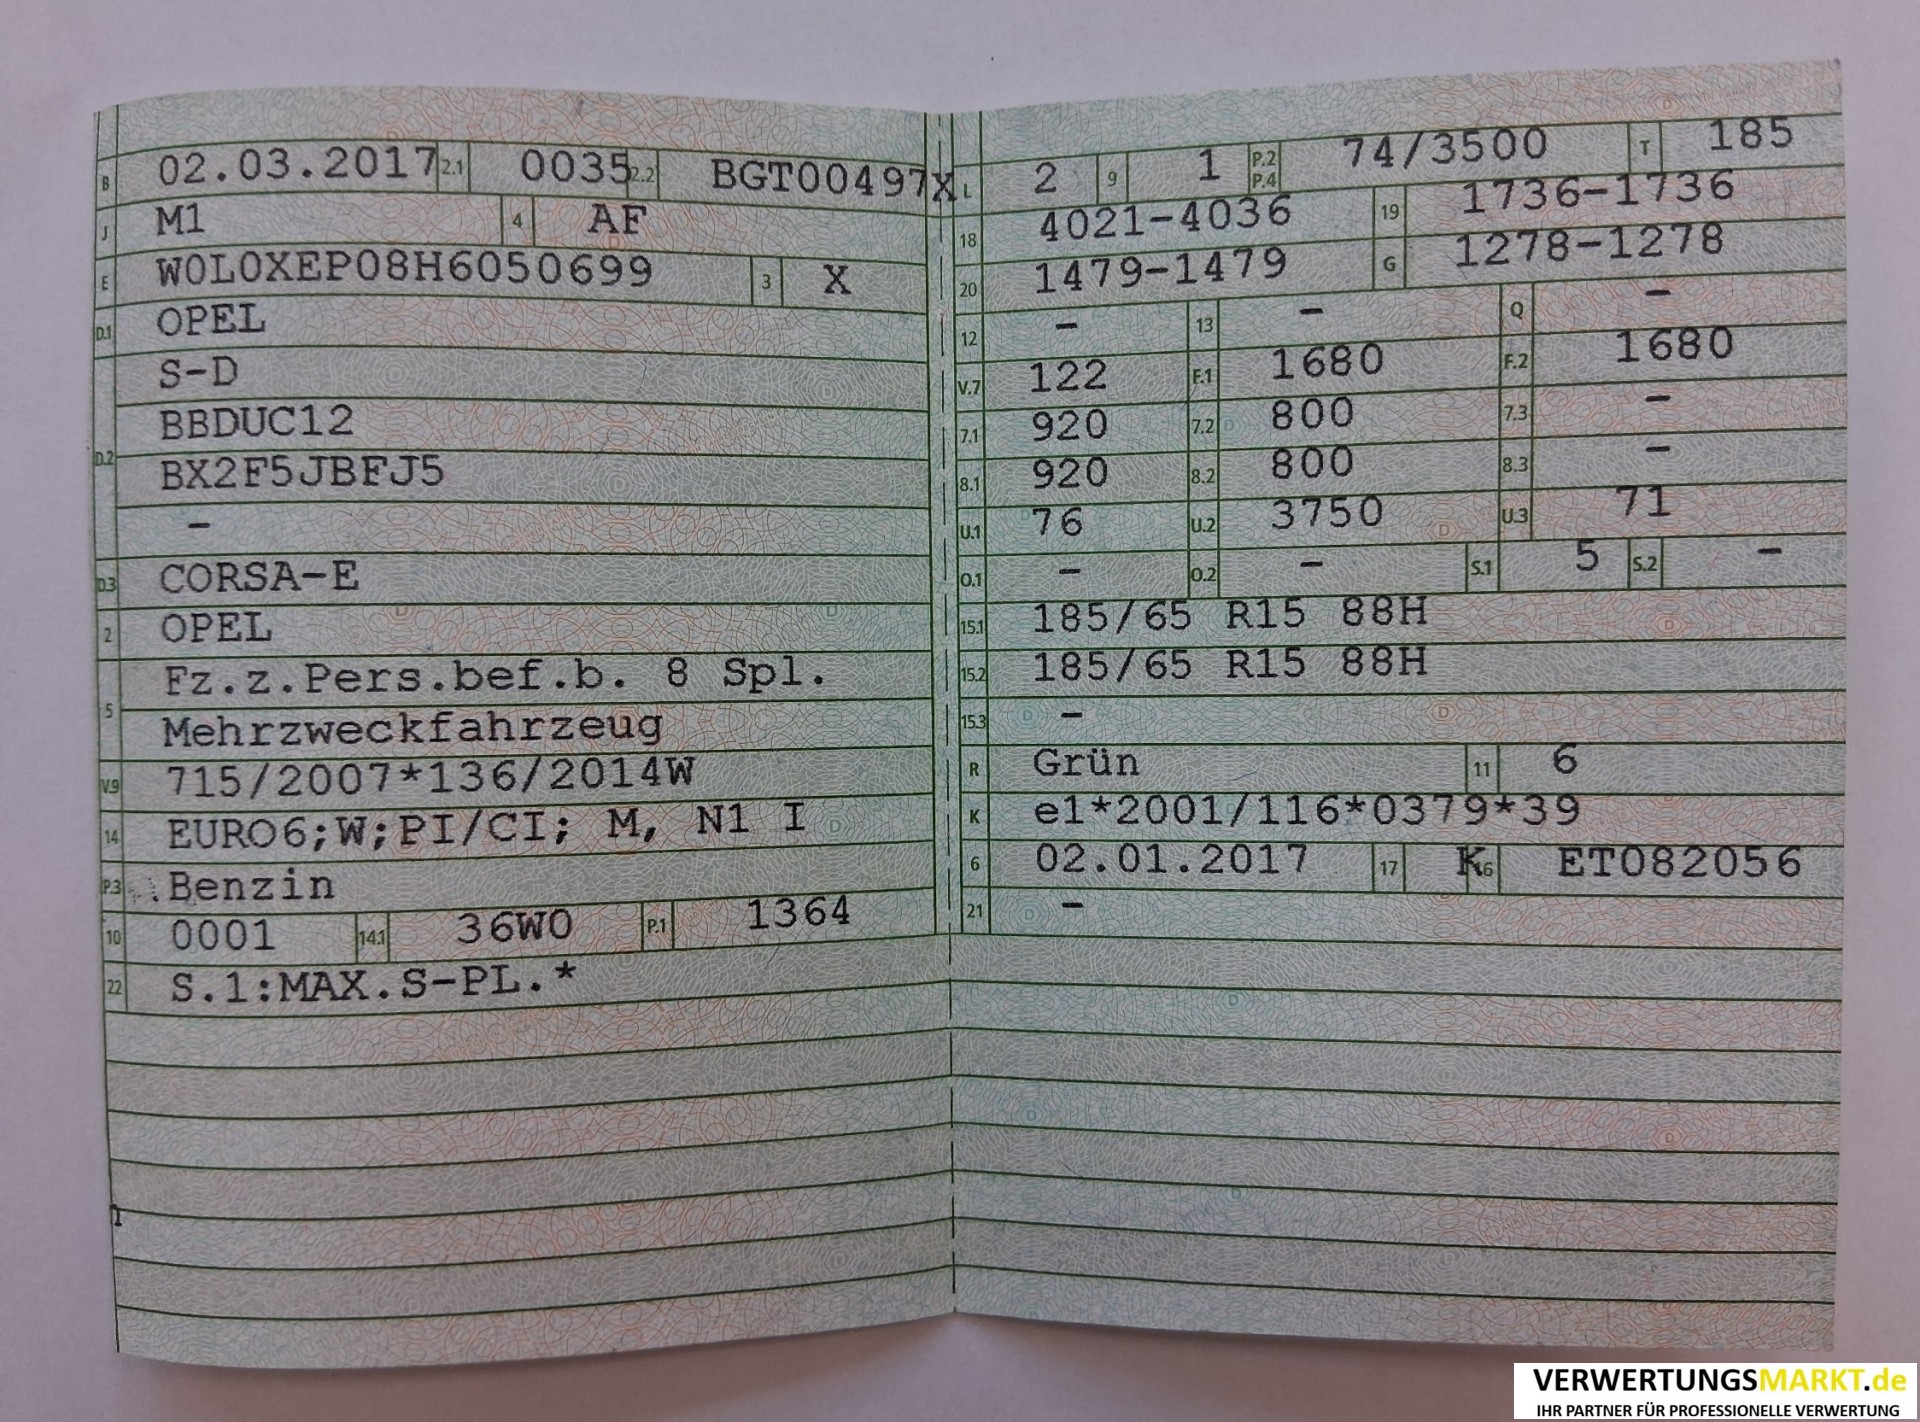 B 02.03.2017 2.1 0035 2.2 BGT00497X
J M1 4 AF
E W0L0XEP08H6050699 3 X
D.1 OPEL
D.2 S-D
BBDUC12
BX2F5JBFJ5
-
D.3 CORSA-E
2 OPEL
5 Fz.z.Pers.bef.b. 8 Spl.
Mehrzweckfahrzeug
V.9 715/2007*136/2014W
14 EURO6;W;PI/CI; M, N1 I
P.3 Benzin
10 0001 14.1 36W0 P.1 1364
22 S.1:MAX.S-PL.*
1
L 2 9 1 P.2 P.4 74/3500 T 185
18 4021-4036 19 1736-1736
20 1479-1479 G 1278-1278
12 - 13 - Q -
V.7 122 F.1 1680 F.2 1680
7.1 920 7.2 800 7.3 -
8.1 920 8.2 800 8.3 -
U.1 76 U.2 3750 U.3 71
O.1 - O.2 - S.1 5 S.2 -
15.1 185/65 R15 88H
15.2 185/65 R15 88H
15.3 -
R Grün 11 6
K e1*2001/116*0379*39
6 02.01.2017 17 K 16 ET082056
21 -
VERWERTUNGSMARKT.de
IHR PARTNER FÜR PROFESSIONELLE VERWERTUNG